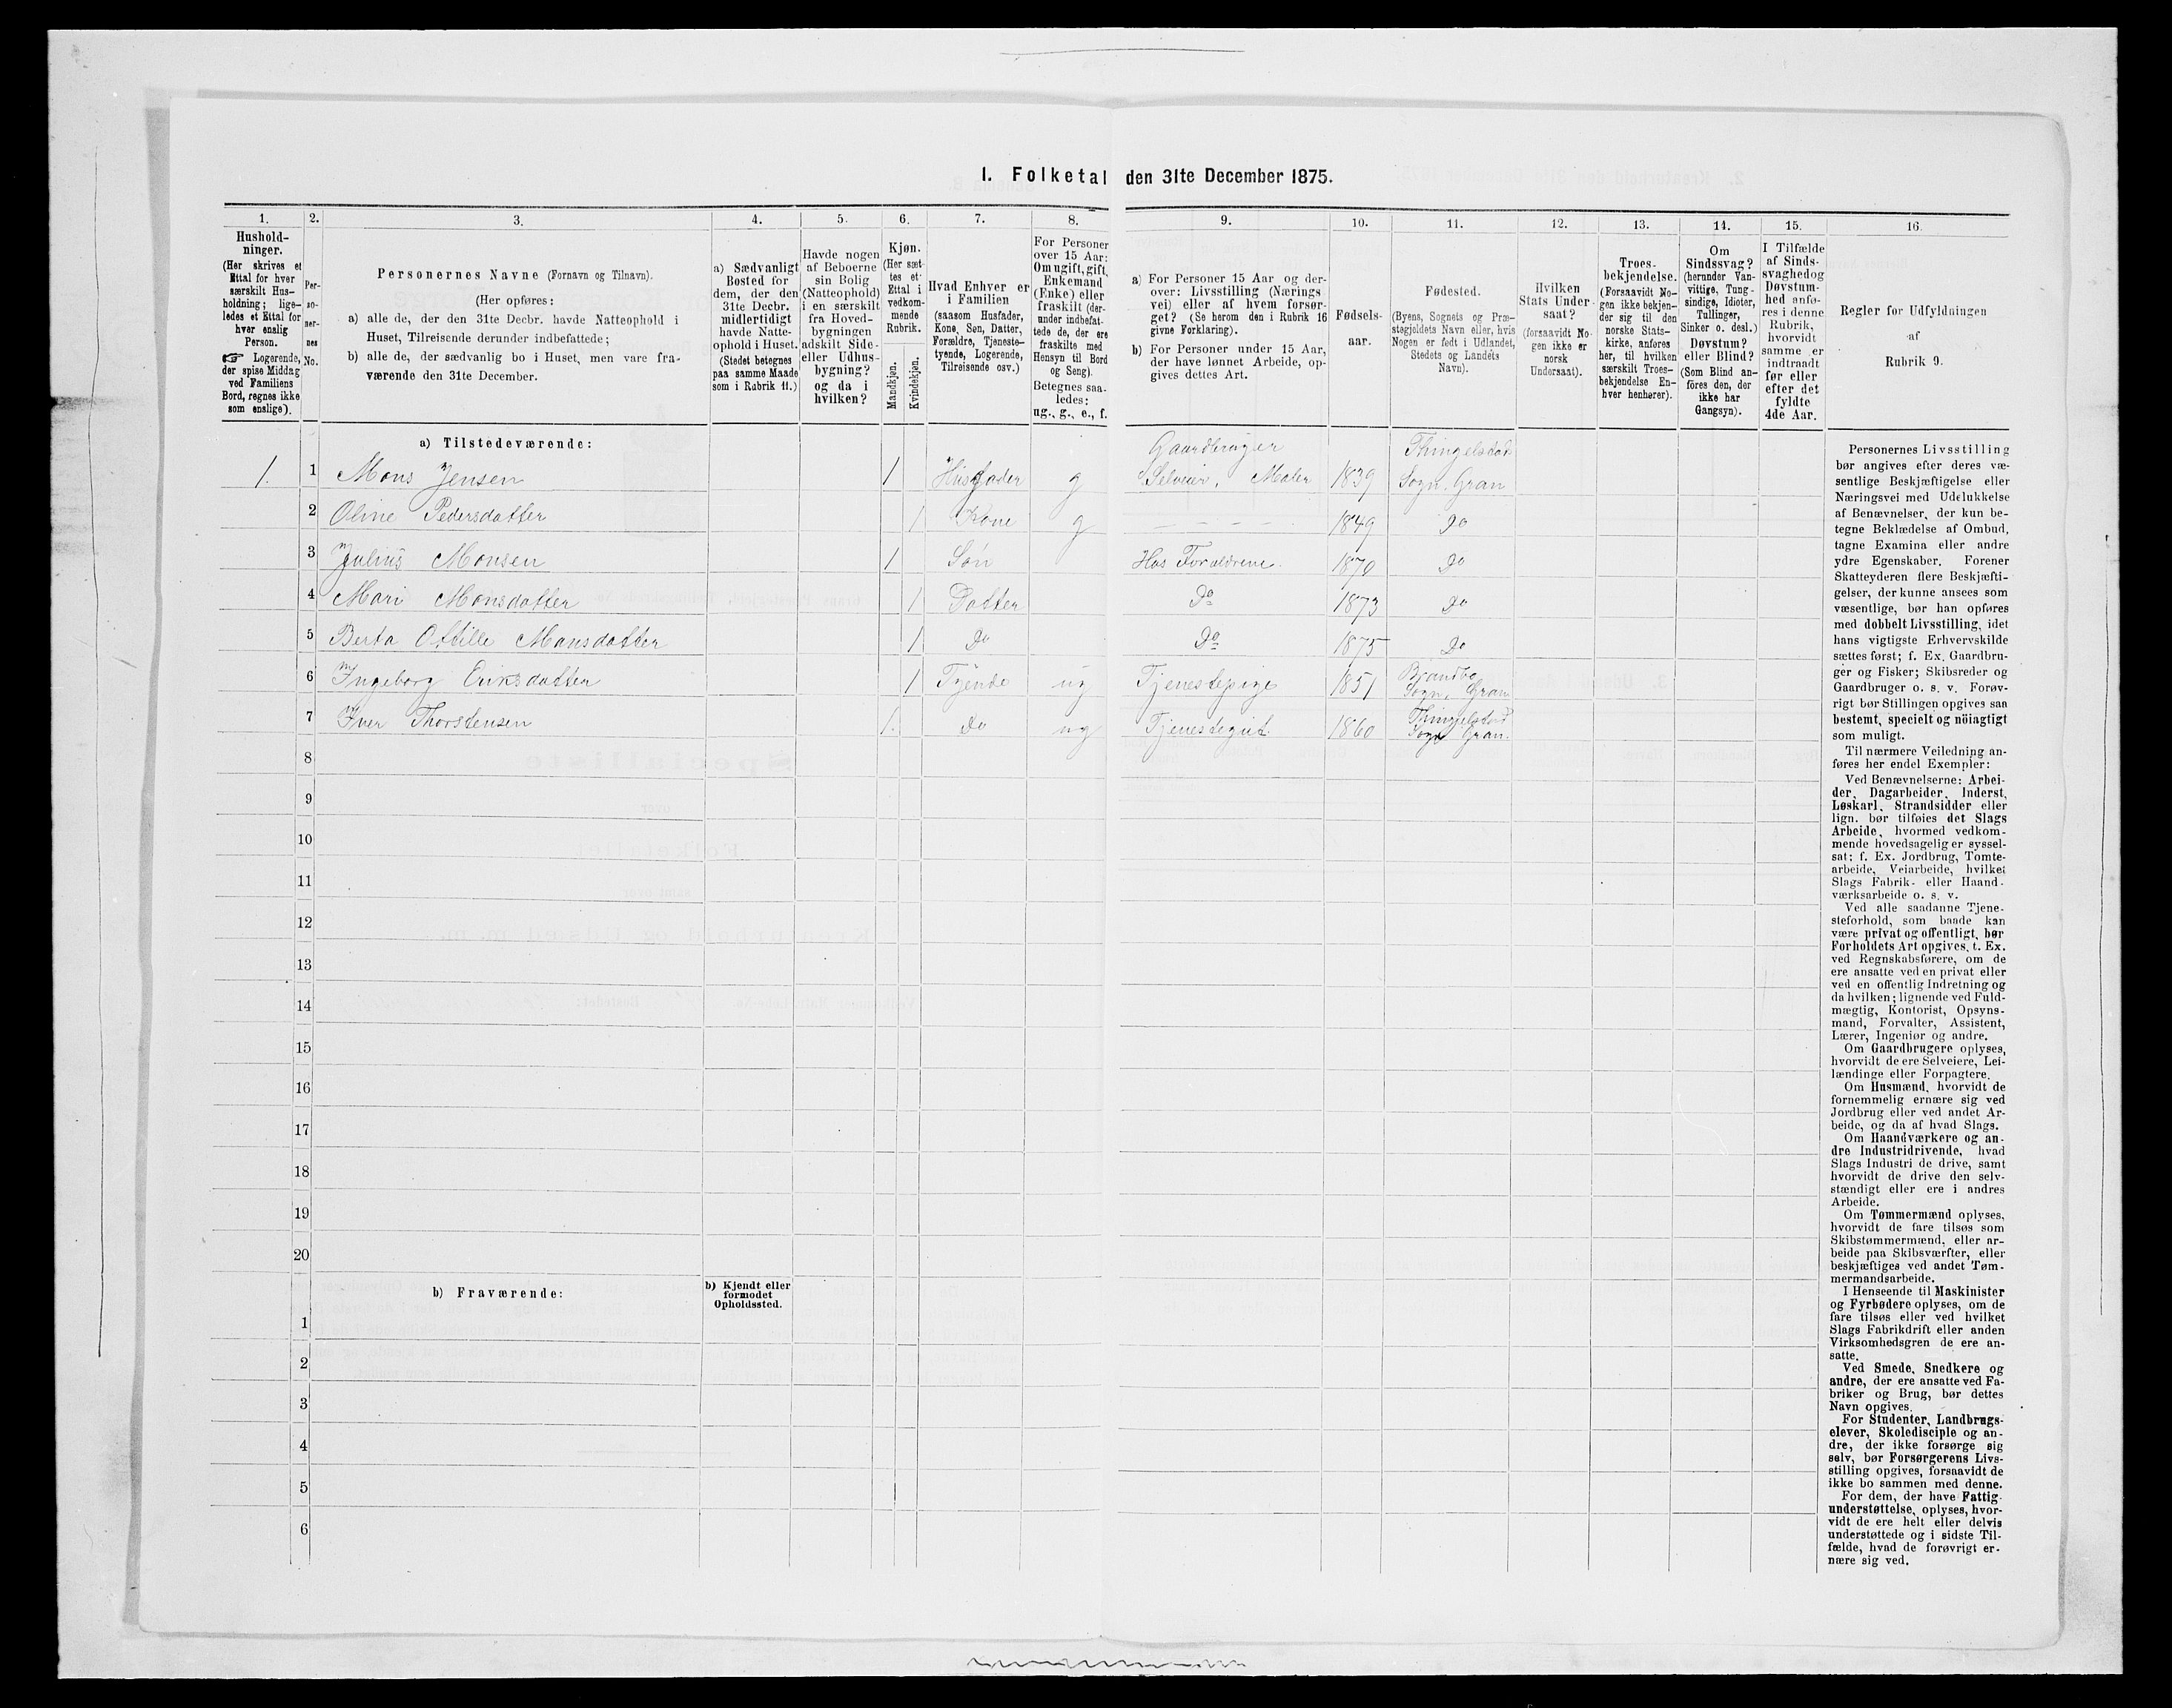 I. Folketal den 31te December 1875.
1.
Hushold-
ninger.
(Her skrives et
Ettal for hver
særskilt Hus-
holdning; lige-
ledes et Ettal for
hver enslig
Person.
☞ Logerende,
der spise Middag
ved Familiens
Bord, regnes ikke
som enslige).
2.
Per-
so-
ner-
nes
No.
3.
Personernes Navne (Fornavn og Tilnavn).
(Her opføres:
a) alle de, der den 31te Decbr. havde Natteophold i
Huset, Tilreisende derunder indbefattede;
b) alle de, der sædvanlig bo i Huset, men vare fra-
værende den 31te December.
4.
a) Sædvanligt
Bosted for
dem, der den
31te Decbr.
midlertidigt
havde Natte-
ophold i Huset.
(Stedet betegnes
paa samme Maade
som i Rubrik 11.)
5.
Havde nogen
af Beboerne
sin Bolig
(Natteophold)
i en særskilt
fra Hoved-
bygningen
adskilt Side-
eller Udhus-
bygning?
og da i
hvilken?
6.
Kjøn.
(Her sæt-
tes et
Ettal i
vedkom-
mende
Rubrik.
Mandkjøn.
Kvindekjøn.
7.
Hvad Enhver er
i Familien
(saasom Husfader,
Kone, Søn, Datter,
Forældre, Tjeneste-
tyende, Logerende,
Tilreisende osv.)
8.
For Personer
over 15 Aar:
Om ugift, gift,
Enkemand
(Enke) eller
fraskilt (der-
under indbefat-
tede de, der ere
fraskilte med
Hensyn til Bord
og Seng).
Betegnes saa-
ledes:
ug., g., e., f.
9.
a) For Personer 15 Aar og der-
over: Livsstilling (Nærings
vei) eller af hvem forsør-
get? (Se herom den i Rubrik 16
givne Forklaring).
b) For Personer under 15 Aar,
der have lønnet Arbeide, op-
gives dettes Art.
10.
Fødsels-
aar.
11.
Fødested.
(Byens, Sognets og Præ-
stegjeldets Navn eller, hvis
Nogen er født i Udlandet,
Stedets og Landets
Navn).
12.
Hvilken
Stats Under-
saat?
(forsaavidt No-
gen ikke er
norsk
Undersaat).
13.
Troes-
bekjendelse.
(Forsaavidt No-
gen ikke bekjen-
der sig til den
norske Stats-
kirke, anføres
her, til hvilken
særskilt Troes-
bekjendelse En-
hver henhører).
14.
Om
Sindssvag?
(herunder Van-
vittige, Tung-
sindige, Idioter,
Tullinger,
Sinker o. desl.)
Døvstum?
eller Blind?
(Som Blind an-
føres den, der
ikke har
Gangsyn).
15.
I Tilfælde
af Sinds-
svaghed og
Døvstum-
hed anfø-
res i denne
Rubrik,
hvorvidt
samme er
indtraadt
før eller
efter det
fyldte
4de Aar.
16.
Regler for Udfyldningen
af
Rubrik 9.
a) Tilstedeværende:
1. 1 Mons Jensen 1 Husfader g Gaardbruger Selveier, Maler 1839 Thingelstad Sogn. Gran
2 Oline Pedersdatter 1 Kone g – – – – 1849 Do
3 Julius Monsen 1 Søn Hos Forældrene. 1870 Do
4 Mari Monsdatter 1 Datter Do 1873 Do
5 Berta Ottille Monsdatter 1 Do Do 1875 Do
6 Ingeborg Eriksdatter 1 Tyende ug Tjenestepige 1851 Sogn, Gran
7 Iver Thorstensen 1. Do ug Tjenestegut. 1860 Thingelstad Sogn Gran.
8
9
10
11
12
13
14
15
16
17
18
19
20
b) Fraværende:
b) Kjendt eller
formodet
Opholdssted.
1
2
3
4
5
6
Personernes Livsstilling
bør angives efter deres væ-
sentlige Beskjæftigelse eller
Næringsvei med Udelukkelse
af Benævnelser, der kun be-
tegne Beklædelse af Ombud,
tagne Examina eller andre
ydre Egenskaber. Forener
Skatteyderen flere Beskjæfti-
gelser, der kunne ansees som
væsentlige, bør han opføres
med dobbelt Livsstilling, idet
hans vigtigste Erhvervskilde
sættes først; f. Ex. Gaardbru-
ger og Fisker; Skibsreder og
Gaardbruger o. s. v. Forøv-
rigt bør Stillingen opgives saa
bestemt, specielt og nöiagtigt
som muligt.
Til nærmere Veiledning an-
føres her endel Exempler:
Ved Benævnelserne: Arbei-
der, Dagarbeider, Inderst,
Løskarl, Strandsidder eller
lign. bør tilføies det Slags
Arbeide, hvormed vedkom-
mende hovedsagelig er syssel-
sat; f. Ex. Jordbrug, Tomte-
arbeide, Veiarbeide, hvilket
Slags Fabrik- eller Haand-
værksarbeide o. s. v.
Ved alle saadanne Tjene-
steforhold, som baade kan
være privat og offentligt, bør
Forholdets Art opgives, t. Ex.
ved Regnskabsførere, om de
ere ansatte ved en privat eller
ved en offentlig Indretning og
da hvilken; lignende ved Fuld-
mægtig, Kontorist, Opsyns-
mand, Forvalter, Assistent,
Lærer, Ingeniør og andre.
Om Gaardbrugere oplyses,
hvorvidt de ere Selveiere, Lei-
lændinge eller Forpagtere.
Om Husmænd, hvorvidt de
fornemmelig ernære sig ved
Jordbrug eller ved andet Ar-
beide, og da af hvad Slags.
Om Haandværkere og an-
dre Industridrivende, hvad
Slags Industri de drive, samt
hvorvidt de drive den selv-
stændigt eller ere i andres
Arbeide.
Om Tømmermænd oplyses,
hvorvidt de fare tilsøs som
Skibstømmermænd, eller ar-
beide paa Skibsværfter, eller
beskjæftiges ved andet Tøm-
mermandsarbeide.
I Henseende til Maskinister
og Fyrbødere oplyses, om de
fare tilsøs eller ved hvilket
Slags Fabrikdrift eller anden
Virksomhedsgren de ere an-
satte.
Ved Smede, Snedkere og
andre, der ere ansatte ved Fa-
briker og Brug, bør dettes
Navn opgives.
For Studenter, Landbrugs-
elever, Skoledisciple og an-
dre, der ikke forsørge sig
selv, bør Forsørgerens Livs-
stilling opgives, forsaavidt de
ikke bo sammen med denne.
For dem, der have Fattig-
understøttelse, oplyses, hvor-
vidt de ere helt eller delvis
understøttede og i sidste Til-
fælde, hvad de forøvrigt er-
nære sig ved.